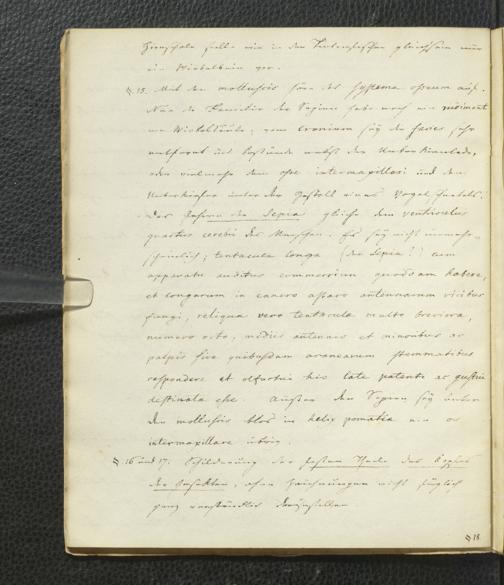 Hirnschale stelle wie in den Tintenfischen gleichsam nur
ein Wirbelbein vor.
§. 15. Mit den molluscis höre das systema osseum auf.
Nur die Familie der Sepien habe noch ein rudiment
von Wirbelsäule, vom cranium sey die facies sehr
und bestünde nebst der Unterkinnlade,
oder vielmehr dem osse intermaxillari und dem
Unterkiefer unter der Gestalt eines Vogelschnabels.
Das Gehirn der Sepia gleiche dem ventriculus
quartus cerebri des Menschen. Es sey nicht unwahr-
scheinlich; tentacula longa (der Sepia!) cum
apparatu auditus commercium quoddam habere,
et longarum in cancro astaco antennarum vicibus
fungi, reliqua vero tentacula multo breviora,
numero octo, mediis antennis et minoribus ac
palpis sive quibusdam aranearum stemmatibus
respondere et olfactui his late patenti ac gustui
destinata esse. Außer den Sepien sey unter
den molluscis blos in helix pomatia ein os
intermaxillare übrig.
§. 16 und 17. Schilderung der festen Theile des Kopfes
der Insekten, ohne Zeichnungen nicht füglich
ganz verständlich darzustellen
§ 18